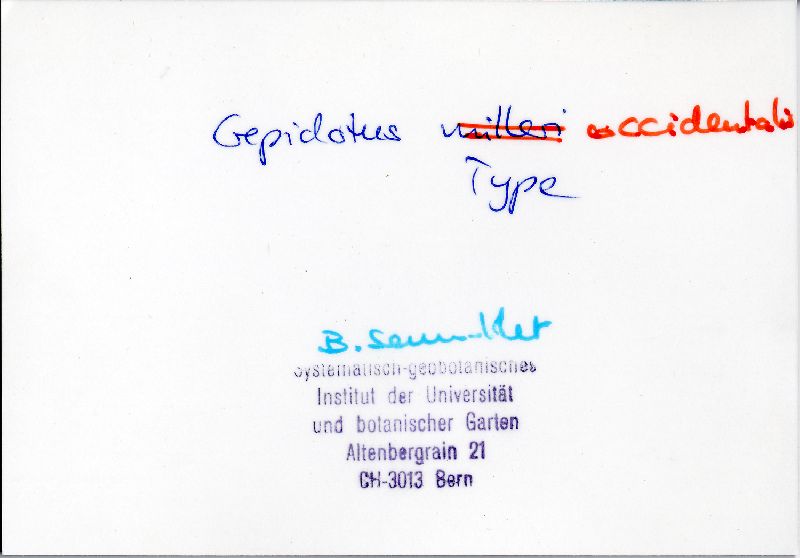 Crepidotus milleri occidentalis
Type
B. Senn-Irlet
Systematisch-geobotanisches
Institut der Universität
und botanischer Garten
Altenbergrain 21
CH-3013 Bern